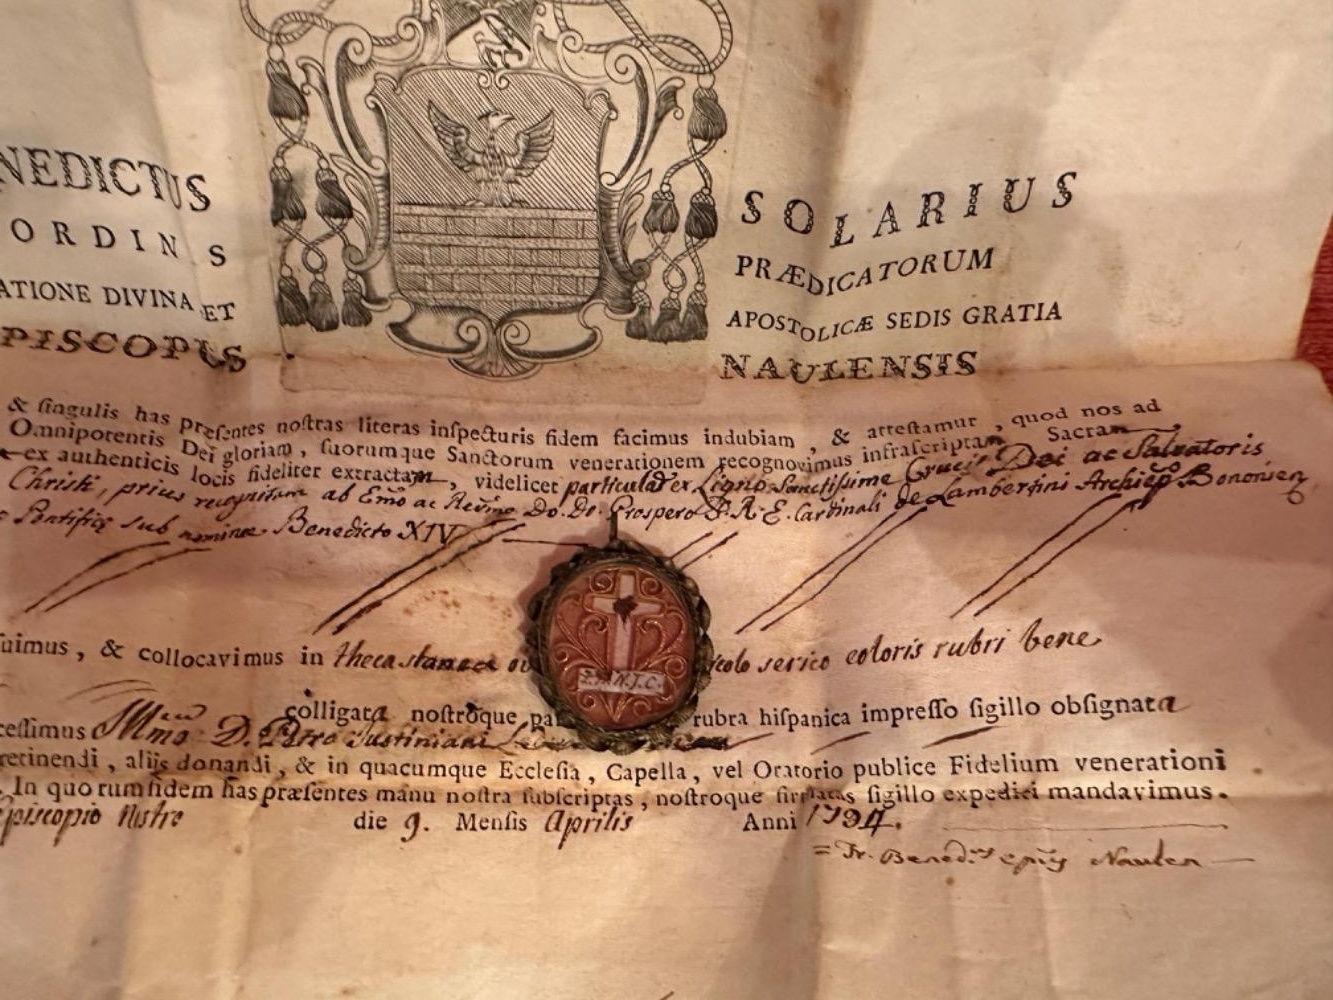 NEDICTUS SOLARIUS
ORDINIS PRÆDICATORUM
ATIONE DIVINA ET APOSTOLICÆ SEDIS GRATIA
PISCOPUS NAULENSIS
& singulis has præsentes nostras literas inspecturis fidem facimus indubiam, & attestamur, quod nos ad
Omnipotentis Dei gloriam, suorumque Sanctorum venerationem recognovimus infrascriptam Sacram
ex authenticis locis fideliter extractam, videlicet particulas ex Ligno Sanctissime Crucis Dni ac Salvatoris
Christi, prius recognitam ab Emo ac Revmo Do. Do. Prospero S. R. E. Cardinali de Lambertini Archiepo Bononien
Pontifice sub nomine Benedicto XIV
uimus, & collocavimus in theca stannea serico coloris rubri bene
colligata nostroque rubra hispanica impresso sigillo obsignata
cessimus Illmo D. Petro Justiniani
retinendi, aliis donandi, & in quacumque Ecclesia, Capella, vel Oratorio publice Fidelium venerationi
In quorum fidem has præsentes manu nostra subscriptas, nostroque firmatas sigillo expediri mandavimus.
piscopio Nostro die 9. Mensis Aprilis Anni 1794.
= Fr. Bened.us epus Naulen